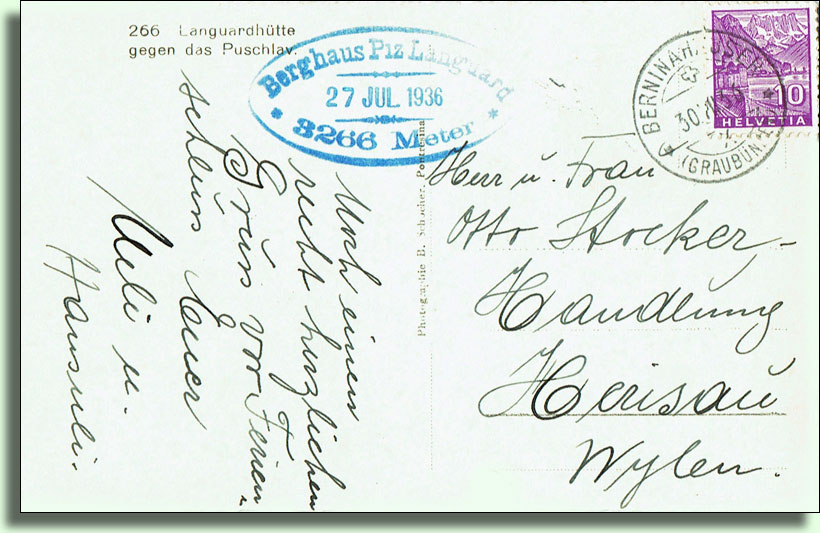 266 Languardhütte
gegen das Puschlav.
Berghaus Piz Languard
27 JUL. 1936
3266 Meter
BERNINAHÄUSER
30. VII.
(GRAUBÜN
10
HELVETIA
Photographie B. Schocher, Pontresina
Noch einen
recht herzlichen
Grüss vor Ferien-
schluss Euer
Ueli u.
Hansueli.
Herr u. Frau
Otto Stocker,-
Handlung
Herisau
Wylen.